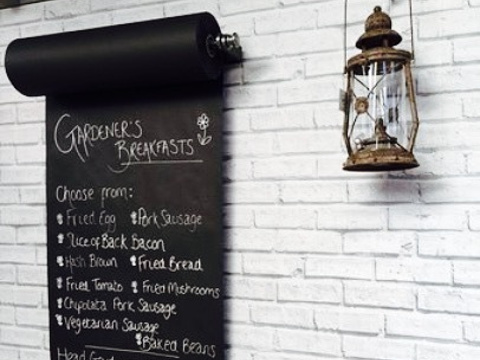 GARDENER'S
BREAKFASTS
Choose from:
Fried Egg Pork Sausage
Slice of Back Bacon
Hash Brown Fried Bread
Fried Tomato Fried Mushrooms
Chipolata Pork Sausage
Vegetarian Sausage
Baked Beans
Head